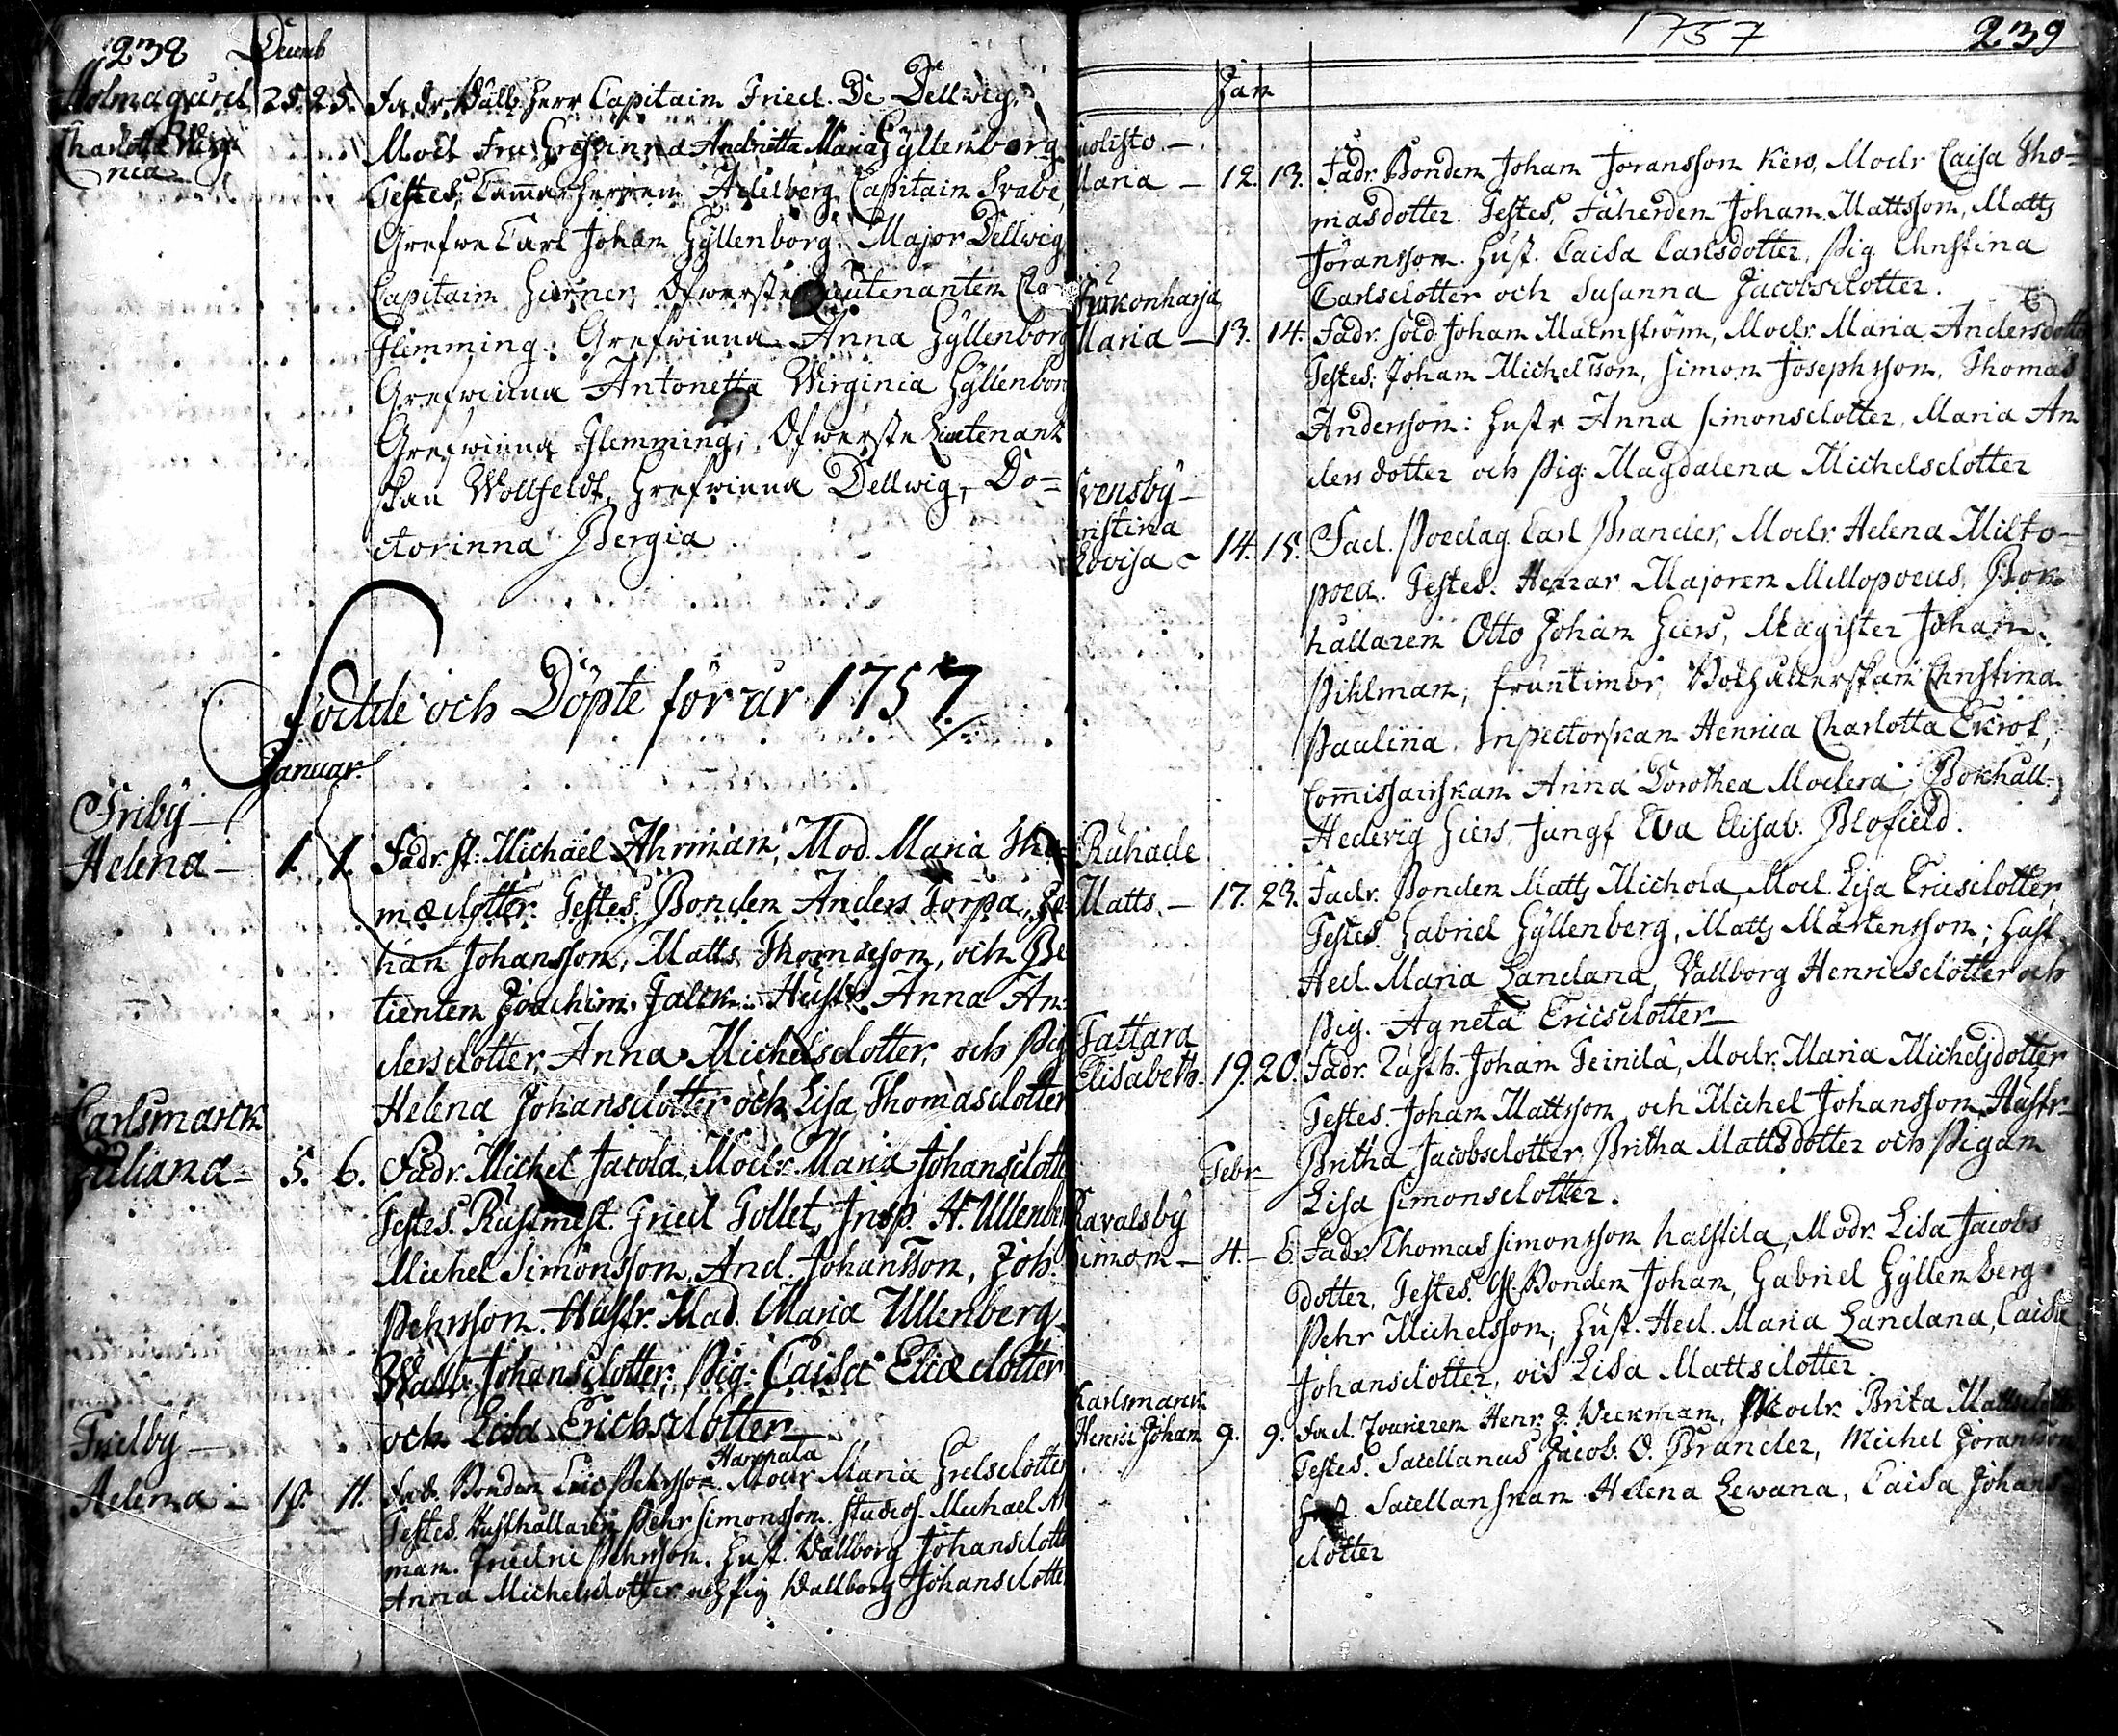 238 Decemb
Holmagård 25. 25. Fadr. Wälb. Herr Capitain Fried. De Dellwig,
Charlotta Virgi Mod. Fru Grefvinna Andrietta Maria Gyllenborg
nia Testes, Cammar Herren Adelberg, Capitain Svabe,
Grefwe Carl Johan Gyllenborg, Major Dellwig
Capitain Hierner, Öfwerste Lieutenanten
Flemming: Grefwinna Anna Gyllenborg
Grefwinna Antonetta Wirginia Gyllenborg
Grefwinna Flemming; Öfwerste Lieutenant
skan Wollfeldt, Grefwinna Dellwig, Do-
ctorinna Bergia.
Födde och Döpte för år 1757.
Januar.
Friby
Helena 1. 1. Fadr. st: Michael Ahrman, Mod. Maria Tho
mædotter. Testes, Bonden Anders Torpa, Jo
han Johansson, Matts Thomasson, och Be
tienten Joachim Falck: Hustr. Anna An-
dersdotter, Anna Michelsdotter, och Pig
Helena Johansdotter och Lisa Thomasdotter
Carlsmarck
Juliana 5. 6. Fadr. Michel Jacola, Modr. Maria Johansdotte
Testes. Rustmest. Fried Tollet, Insp. H. Ullenber
Michel Simonsson, And. Johansson, Joh.
Pehrsson. Hustr. Mad. Maria Ullenberg
Wallb. Johansdotter, Pig: Caisa Eliædotter
och Lisa Erichsdotter
Frelby Harppala
Helena 10. 11. Fad. Bonden Eric Pehrsson. Modr Maria Grelsdotter
Testes. Rusthållaren Pehr Simonsson. studios. Michael
man. Friedric Pehrsson. Hust. Wallborg Johansdotte
Anna Michelsdotter och pig Wallborg Johansdotte
1757 239
Jan
Juolisto
Maria 12. 13. Fadr. Bonden Johan Joransson Kero, Modr Caisa Tho-
masdotter. Testes, Fäherden Johan Mattsson, Matts
Joransson. Hust. Caisa Carlsdotter, Pig. Christina
Carlsdotter och Susanna Jacobsdotter.
Pukonharja
Maria 13. 14. Fadr. sold. Johan Malmström, Modr. Maria Andersdotte
Testes. Johan Michelsson, Simon Josephsson, Thomas
Andersson: Hustr Anna Simonsdotter, Maria An
dersdotter och Pig: Magdalena Michelsdotter
Svensby
ristina
Lovisa 14. 15. Fad. Pædag. Carl Brander, Modr. Helena Milto-
poea. Testes. Herrar Majoren Millopoeus, Bok
hallaren Otto Johan Giers, Magister Johan
Pihlman, fruntimbr. Bokhallerskan Christina
Paulina. Inspectorskan Henrica Charlotta Ekrot,
Commissairskan Anna Dorothea Modera, Bokhåll.
Hedevig Giers, Jungf Eva Elisab. Blofield.
Råhade
Matts 17. 23. Fadr. Bonden Matts Michola, Mod. Lisa Ericsdotter,
Testes. Gabriel Gyllenberg, Matts Mårtensson; Hust
Hed. Maria Landana, Vallborg Henricsdotter och
Pig. Agneta Ericsdotter
Tattara
Elisabeth 19. 20. Fadr. Rusth. Johan Teinila, Modr. Maria Michelsdotter
Testes. Johan Mattsson och Michel Johansson, Hustr
Febr Britha Jacobsdotter, Britha Mattsdotter och Pigan
Lisa Simonsdotter.
Kavalsby
Simon 4. 6. Fadr. Thomas Simonsson hastila, Modr. Lisa Jacobs
dotter, Testes. Bonden Johan, Gabriel Gyllenberg
Pehr Michelsson; Hust. Hed. Maria Landana, Caisa
Johansdotter, och Lisa Mattsdotter.
Karlsmarck
Henric Johan 9. 9. Fad. Henr. J. Weckman, Modr. Brita Mattsdotte
Testes. Sacellanus Jacob. O. Brander, Michel Joransson
Hust. Sacellanskan Helena Lewana, Caisa Johans
dotter